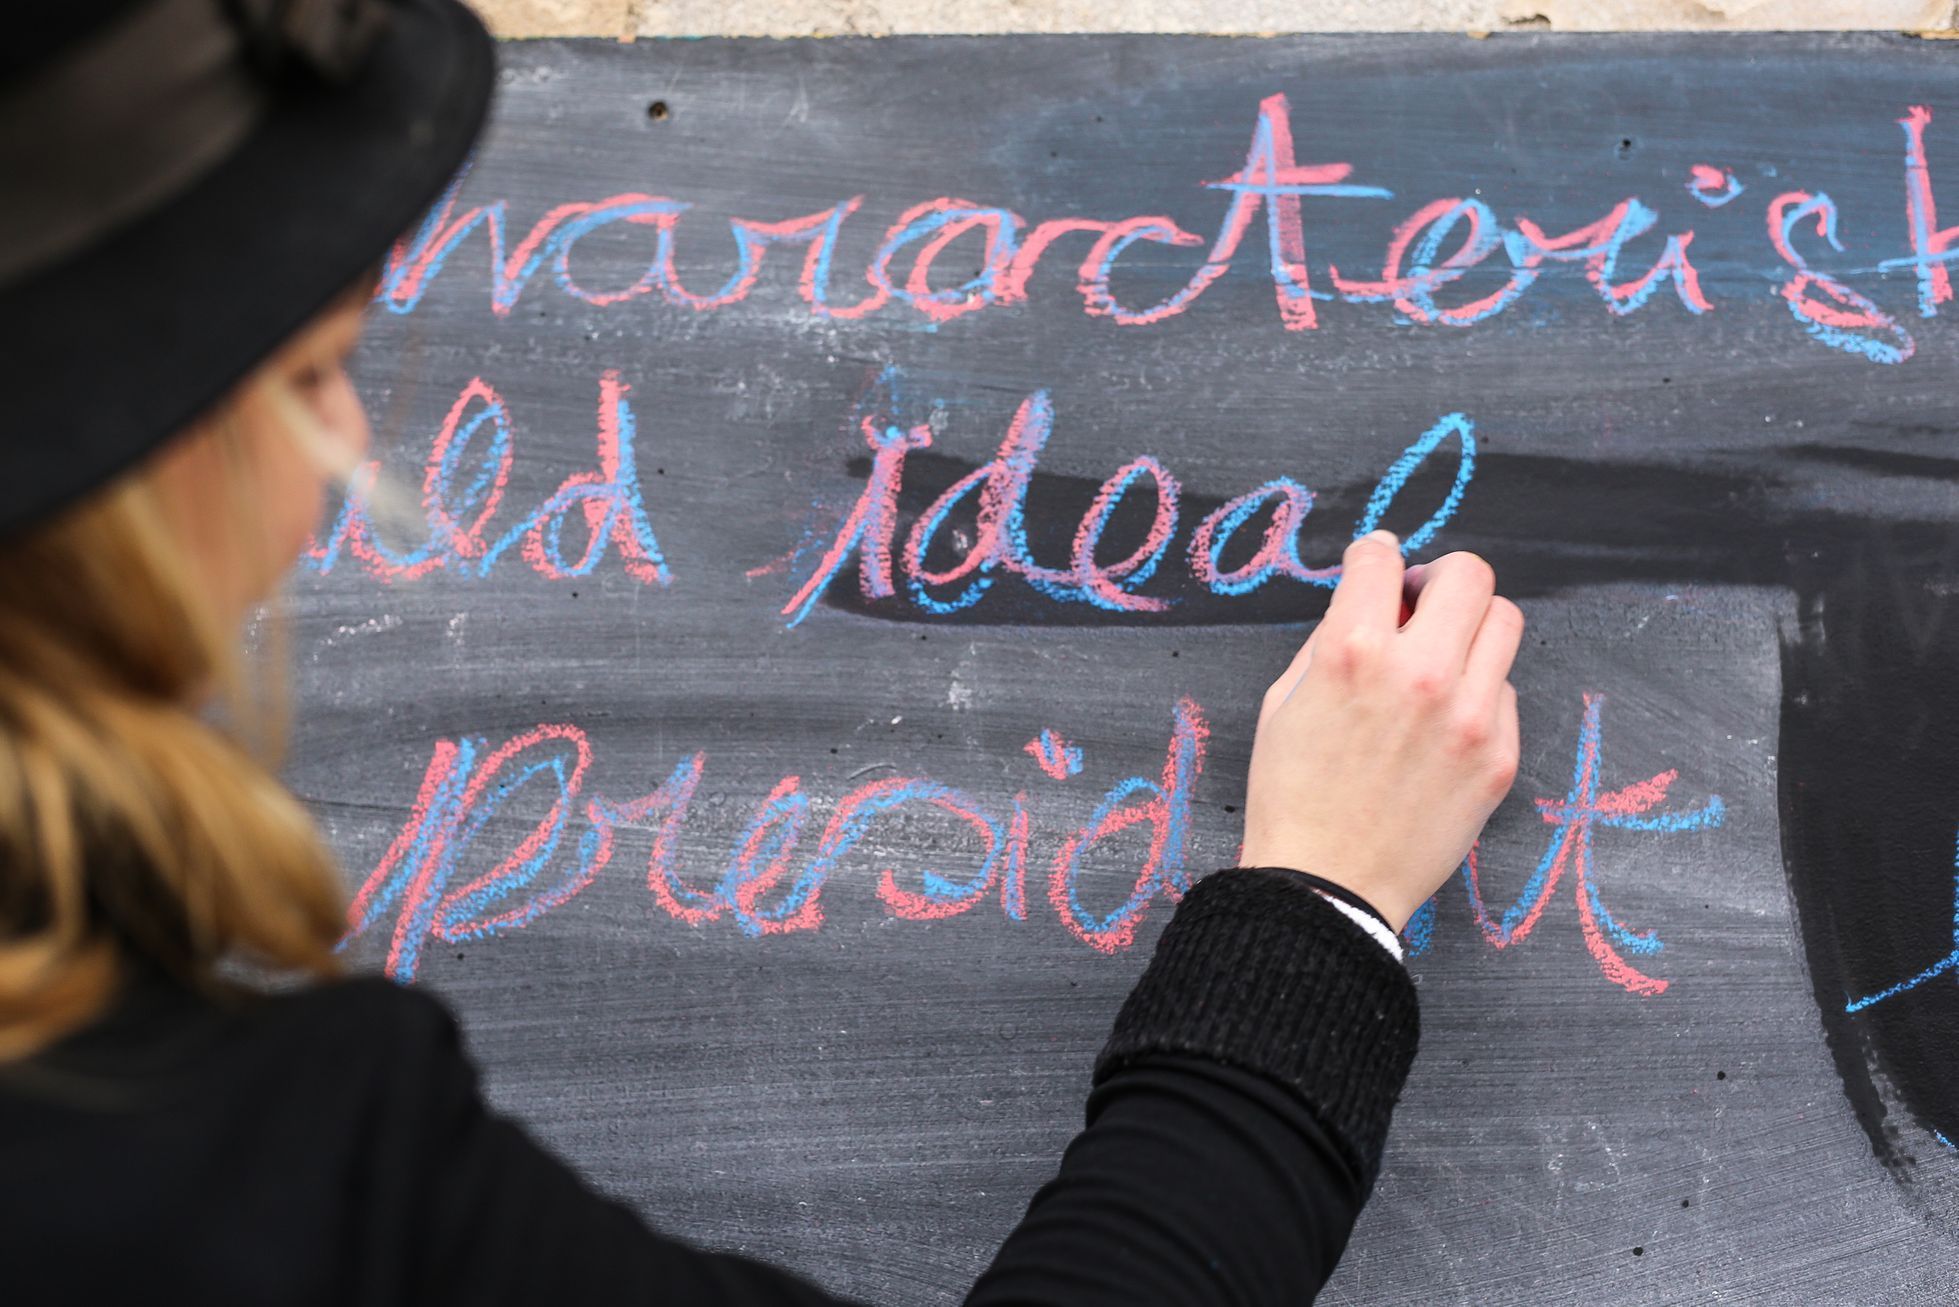 haracterist
uld ideal
president